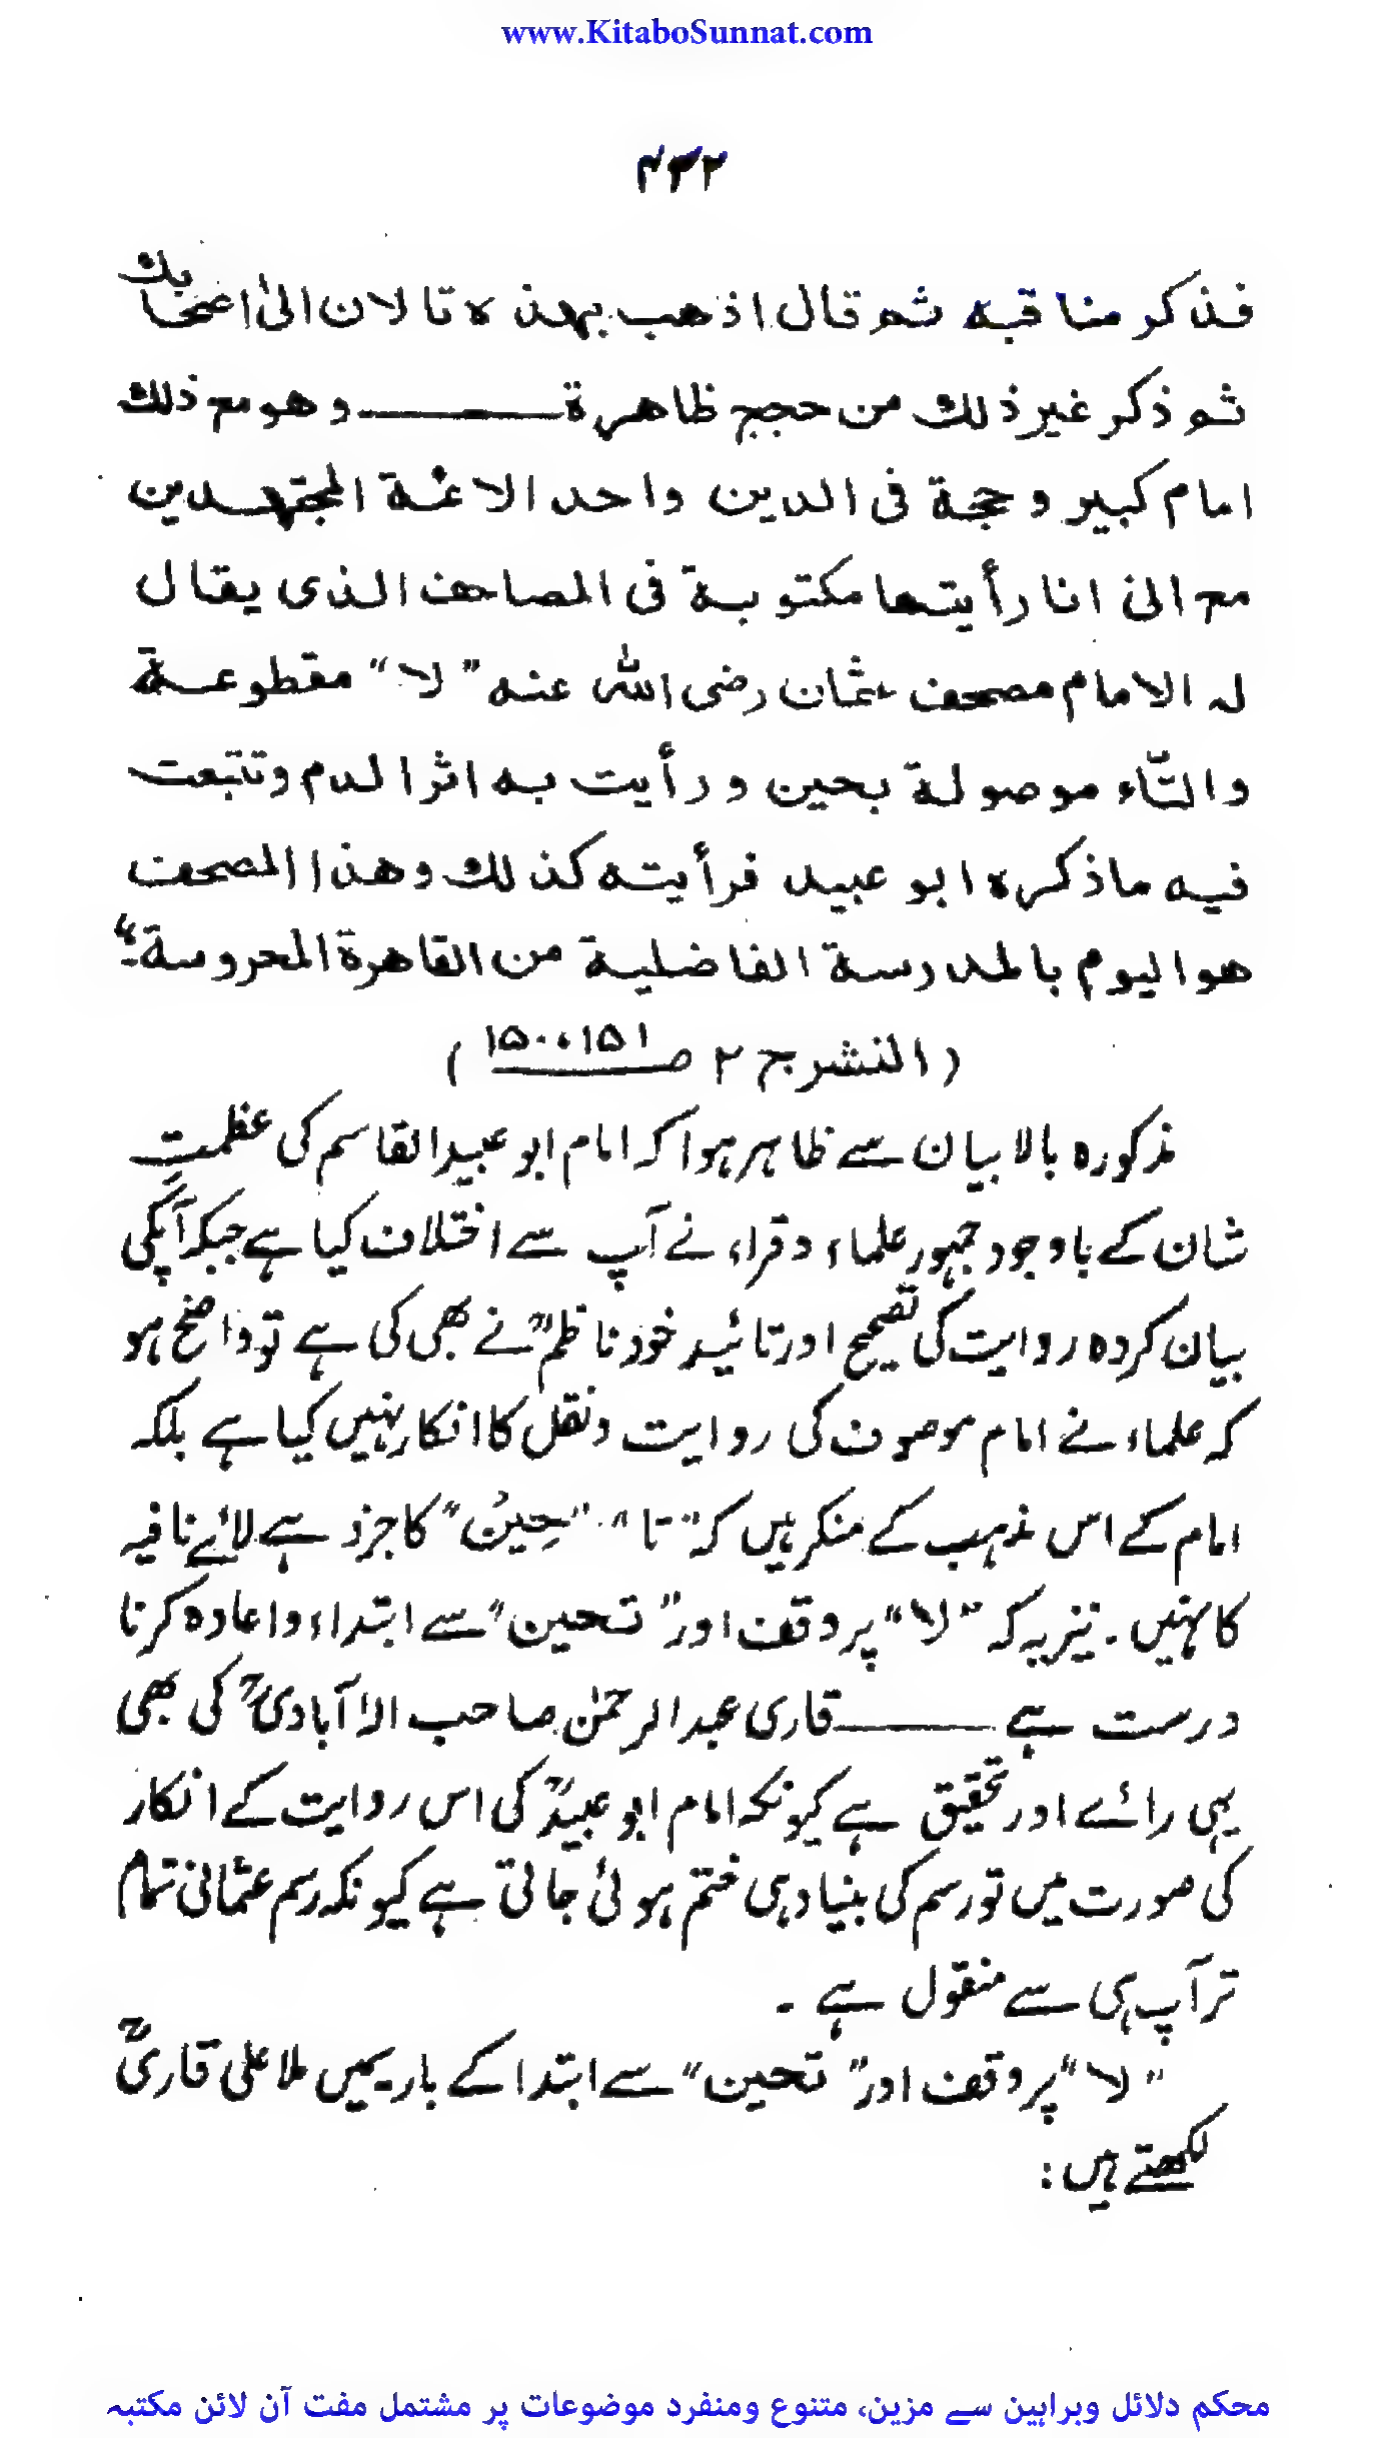 www.KitaboSunnat.com
۴۳۲
فذكر مناقبه ثم قال اذهب بهذه تالان الىٰ اصحابك
ثم ذكر غير ذلك من حجج ظاهرة ——— وهو مع ذلك
امام كبير وحجة فى الدين واحد الائمة المجتهدين
مع انى انا رأيتها مكتوبة فى المصاحف الذى يقال
له الامام مصحف عثمان رضى الله عنه "لا" مقطوعة
والتّاء موصولة بحين ورأيت به اثر الدم وتتبعت
فيه ماذكره ابو عبيد فرأيته كذلك وهذا المصحف
هو اليوم بالمدرسة الفاضلية من القاهرة المحروسة۔"
(النشر ج ۲ صـ ۱۵۰،۱۵۱)
مذکورہ بالا بیان سے ظاہر ہوا کہ امام ابو عبید القاسم کی عظمتِ
شان کے باوجود جمہور علماء وقراء نے آپ سے اختلاف کیا ہے جبکہ آپکی
بیان کردہ روایت کی تصحیح اور تائید خود ناظمؒ نے بھی کی ہے تو واضح ہو
کہ علماء نے امام موصوف کی روایت ونقل کا انکار نہیں کیا ہے بلکہ
امام کے اس مذہب کے منکر ہیں کہ "تا" "حِینُ" کا جزو ہے لائے نافیہ
کا نہیں۔ نیز یہ کہ "لا" پر وقف اور "تحین" سے ابتداء واعادہ کرنا
درست ہے ——— قاری عبدالرحمٰن صاحب الٰہ آبادیؒ کی بھی
یہی رائے اور تحقیق ہے کیونکہ امام ابو عبیدؒ کی اس روایت کے انکار
کی صورت میں تو رسم کی بنیاد ہی ختم ہوئی جاتی ہے کیونکہ رسم عثمانی تمام
تر آپ ہی سے منقول ہے ۔
"لا" پر وقف اور "تحین" سے ابتدا کے باریمیں ملا علی قاریؒ
لکھتے ہیں:
محکم دلائل وبراہین سے مزین، متنوع ومنفرد موضوعات پر مشتمل مفت آن لائن مکتبہ